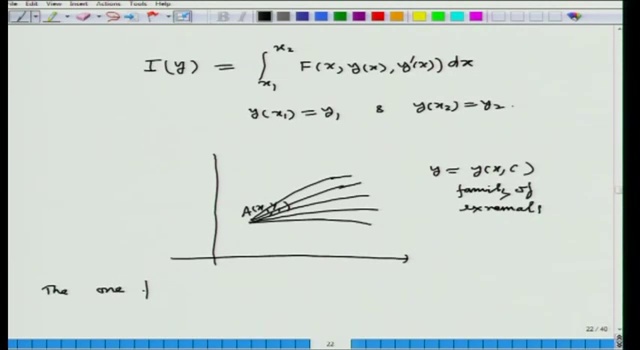 File Edit View Insert Actions Tools Help
I(y) = ∫_{x₁}^{x₂} F(x, y(x), y'(x)) dx
y(x₁) = y₁ & y(x₂) = y₂.
y = y(x, c)
family of
exremals
A(x₁, y₁)
The one
22 / 40
22